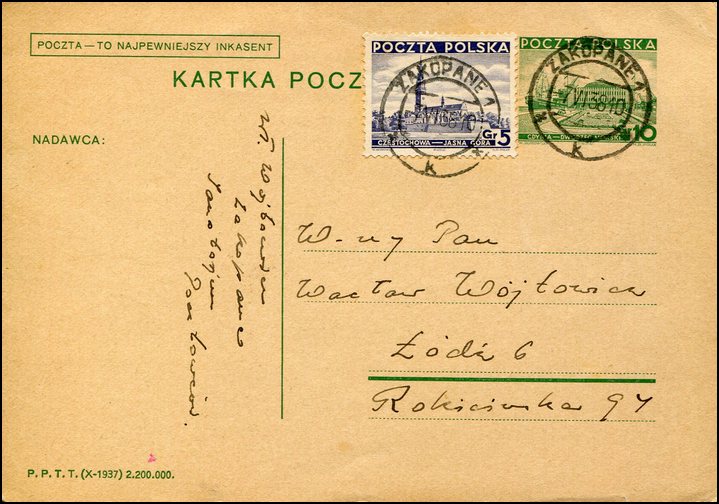 POCZTA — TO NAJPEWNIEJSZY INKASENT
KARTKA POCZ
POCZTA POLSKA
CZĘSTOCHOWA — JASNA GÓRA
Gr 5
POCZTA POLSKA
10
ZAKOPANE 1
k
ZAKOPANE 1
k
NADAWCA:
Wł. Wójtowicz
Zakopane
Sanatorjum
W-ny Pan
Wacław Wójtowicz
Łódź 6
Rokicińska 94
P. P. T. T. (X-1937) 2.200.000.